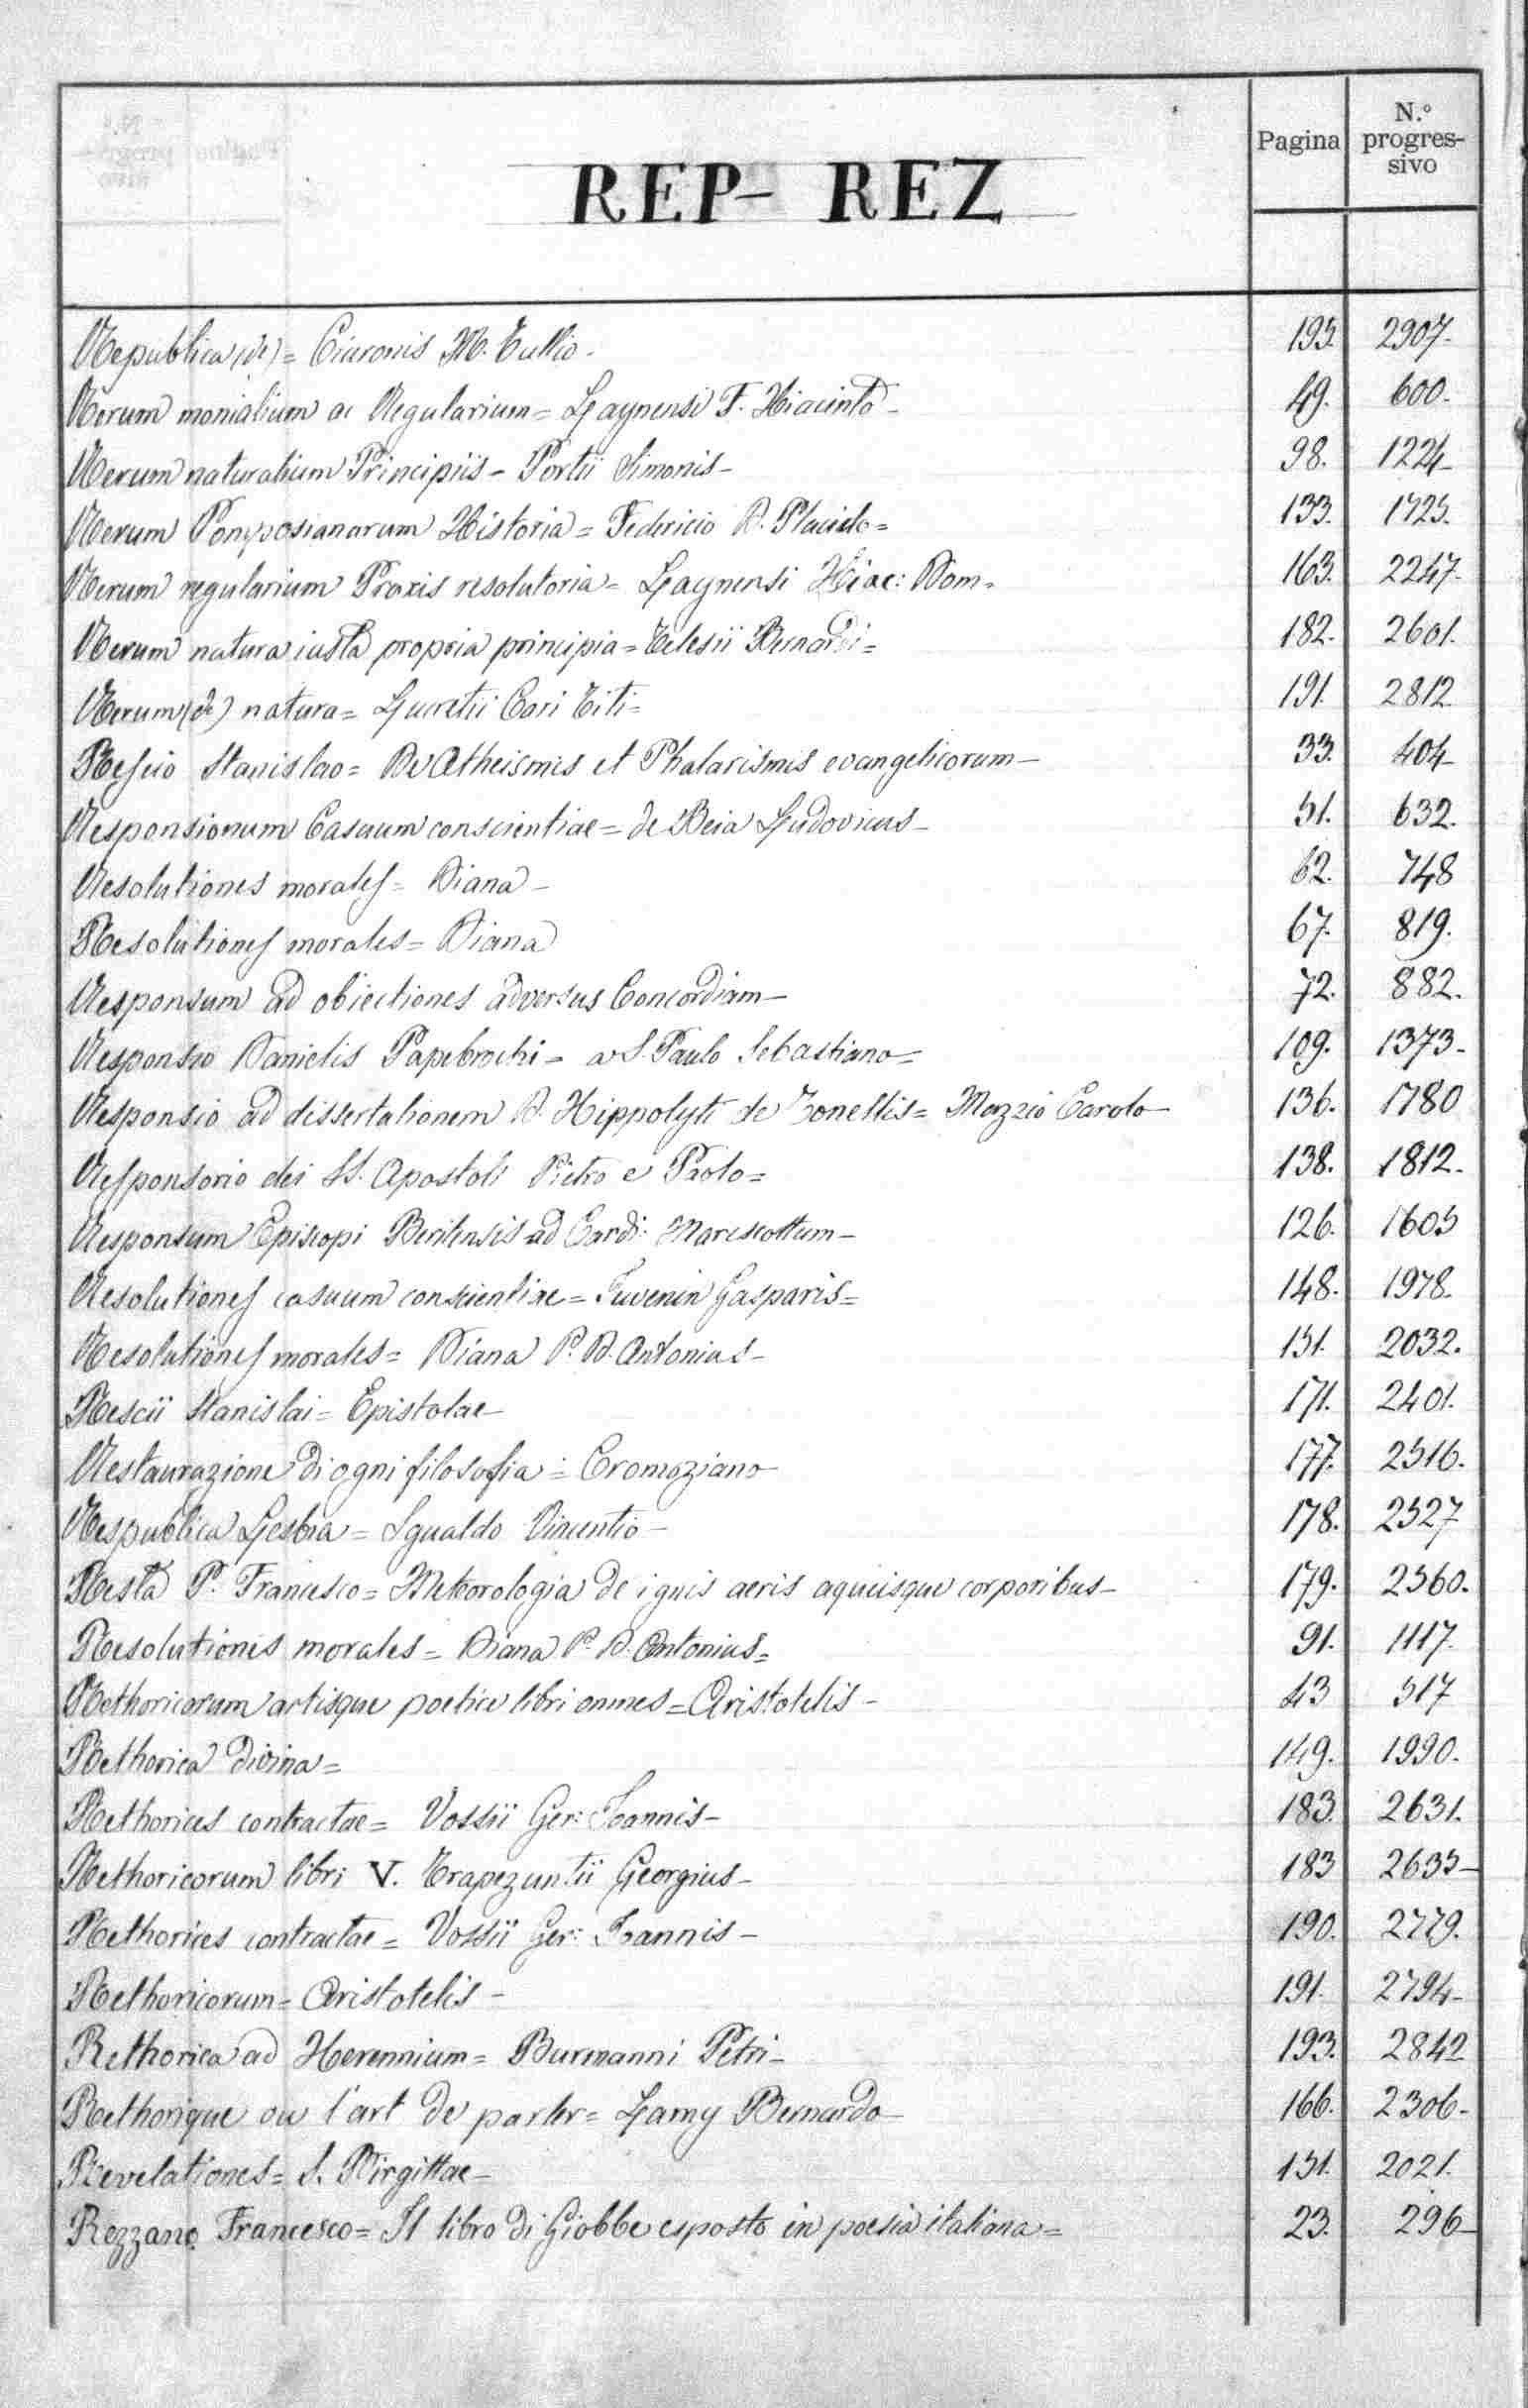 Pagina N.º progres-sivo
REP- REZ
Republica (de) = Ciceronis M. Tullio - 195. 2907-
Rerum monialium ac Regularium = Laynensi F. Hiacinto - 49. 600-
Rerum naturalium Principiis - Portii Simonis - 98. 1224-
Rerum Pomposianarum Historia = Federicio D. Placido = 133. 1725.
Rerum regularium Praxis resolutoria = Laynensi Hiac: Dom - 163. 2247-
Rerum natura iusta propria principia = Telesii Bernardi = 182. 2601.
Rerum (de) natura = Lucretii Cari Titi = 191. 2812
Rescio Stanislao = De Atheismis et Phalarismis evangelicorum - 33. 404-
Responsionum Casuum conscientiae = de Beia Ludovicus - 51. 632.
Resolutiones morales = Diana - 62. 748
Resolutiones morales = Diana 67. 819.
Responsum ad obiectiones adversus Concordiam - 72. 882.
Responsio Danielis Papebrochi - a S. Paulo Sebastiano = 109. 1373-
Responsio ad dissertationem D. Hippolyti de Zonellis = Mazzio Carolo - 136. 1780
Responsorio dei SS. Apostoli Pietro e Paolo = 138. 1812-
Responsum Episcopi Beritensis ad Cardi: Marescottum - 126. 1605
Resolutiones casuum conscientiae = Juvenin Gasparis = 148. 1978.
Resolutiones morales = Diana P. D. Antonius - 151. 2032.
Rescii Stanislai = Epistolae - 171. 2401.
Restaurazione di ogni filosofia = Cromaziano 177. 2516.
Respublica Lesbia = Sgualdo Vincentio - 178. 2527
Resta P. Francesco = Meteorologia de igneis aeris aqueisque corporibus - 179. 2560.
Resolutiones morales = Diana P. D. Antonius = 91. 1117.
Rethoricorum artisque poetice libri omnes = Aristotelis - 43 517
Rethorica divina = 149. 1990.
Rethorices contractae = Vossii Ger: Joannis - 183. 2631.
Rethoricorum libri V. Trapezuntii Georgius - 183 2635-
Rethorices contractae = Vossii Ger: Joannis - 190. 2779.
Rethoricorum = Aristotelis - 191. 2794-
Rethorica ad Herennium = Burmanni Petri - 193. 2842
Rethorique ou l'art de parler = Lamy Bernardo - 166. 2306-
Revelationes = S. Birgittae - 151. 2021.
Rezzano Francesco = Il libro di Giobbe esposto in poesia italiana = 23. 296-